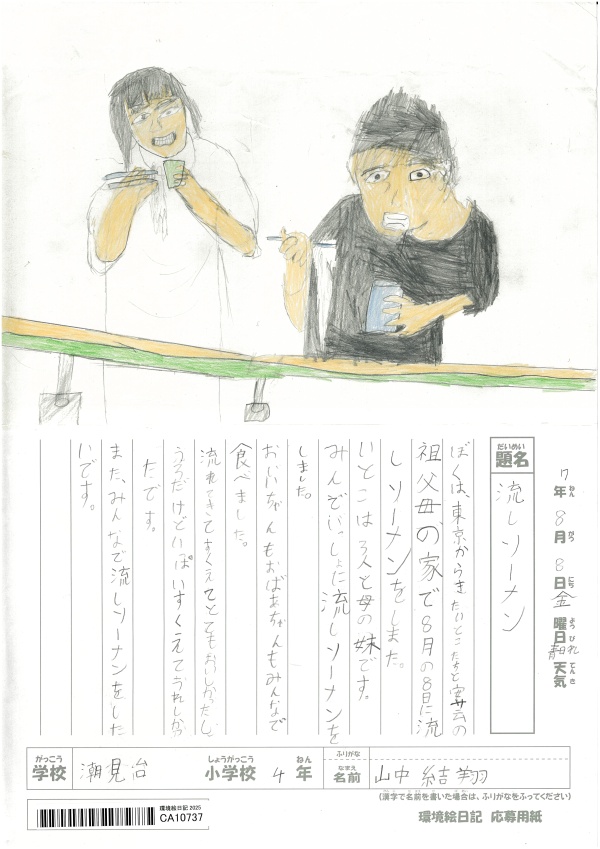 7年8月8日金曜日 晴れ天気
ねん がつ にち ようび てんき
だいめい
題名
流しソーメン
ぼくは、東京からきたいとこたちと安芸の
祖父母の家で8月の8日に流
しソーメンをしました。
いとこは3人と母の妹です。
みんでいっしょに流しソーメンを
しました。
おじいちゃんもおばあちゃんもみんなで
食べました。
流れてきてすくえてとてもおいしかったし、
うろだけどいっぱいすくえてうれしかっ
たです。
また、みんなで流しソーメンをした
いです。
がっこう
学校
潮見
しょうがっこう
小学校
4
ねん
年
ふりがな
なまえ
名前
山中 結翔
(漢字で名前を書いた場合は、ふりがなをふってください)
環境絵日記 2025
CA10737
環境絵日記 応募用紙